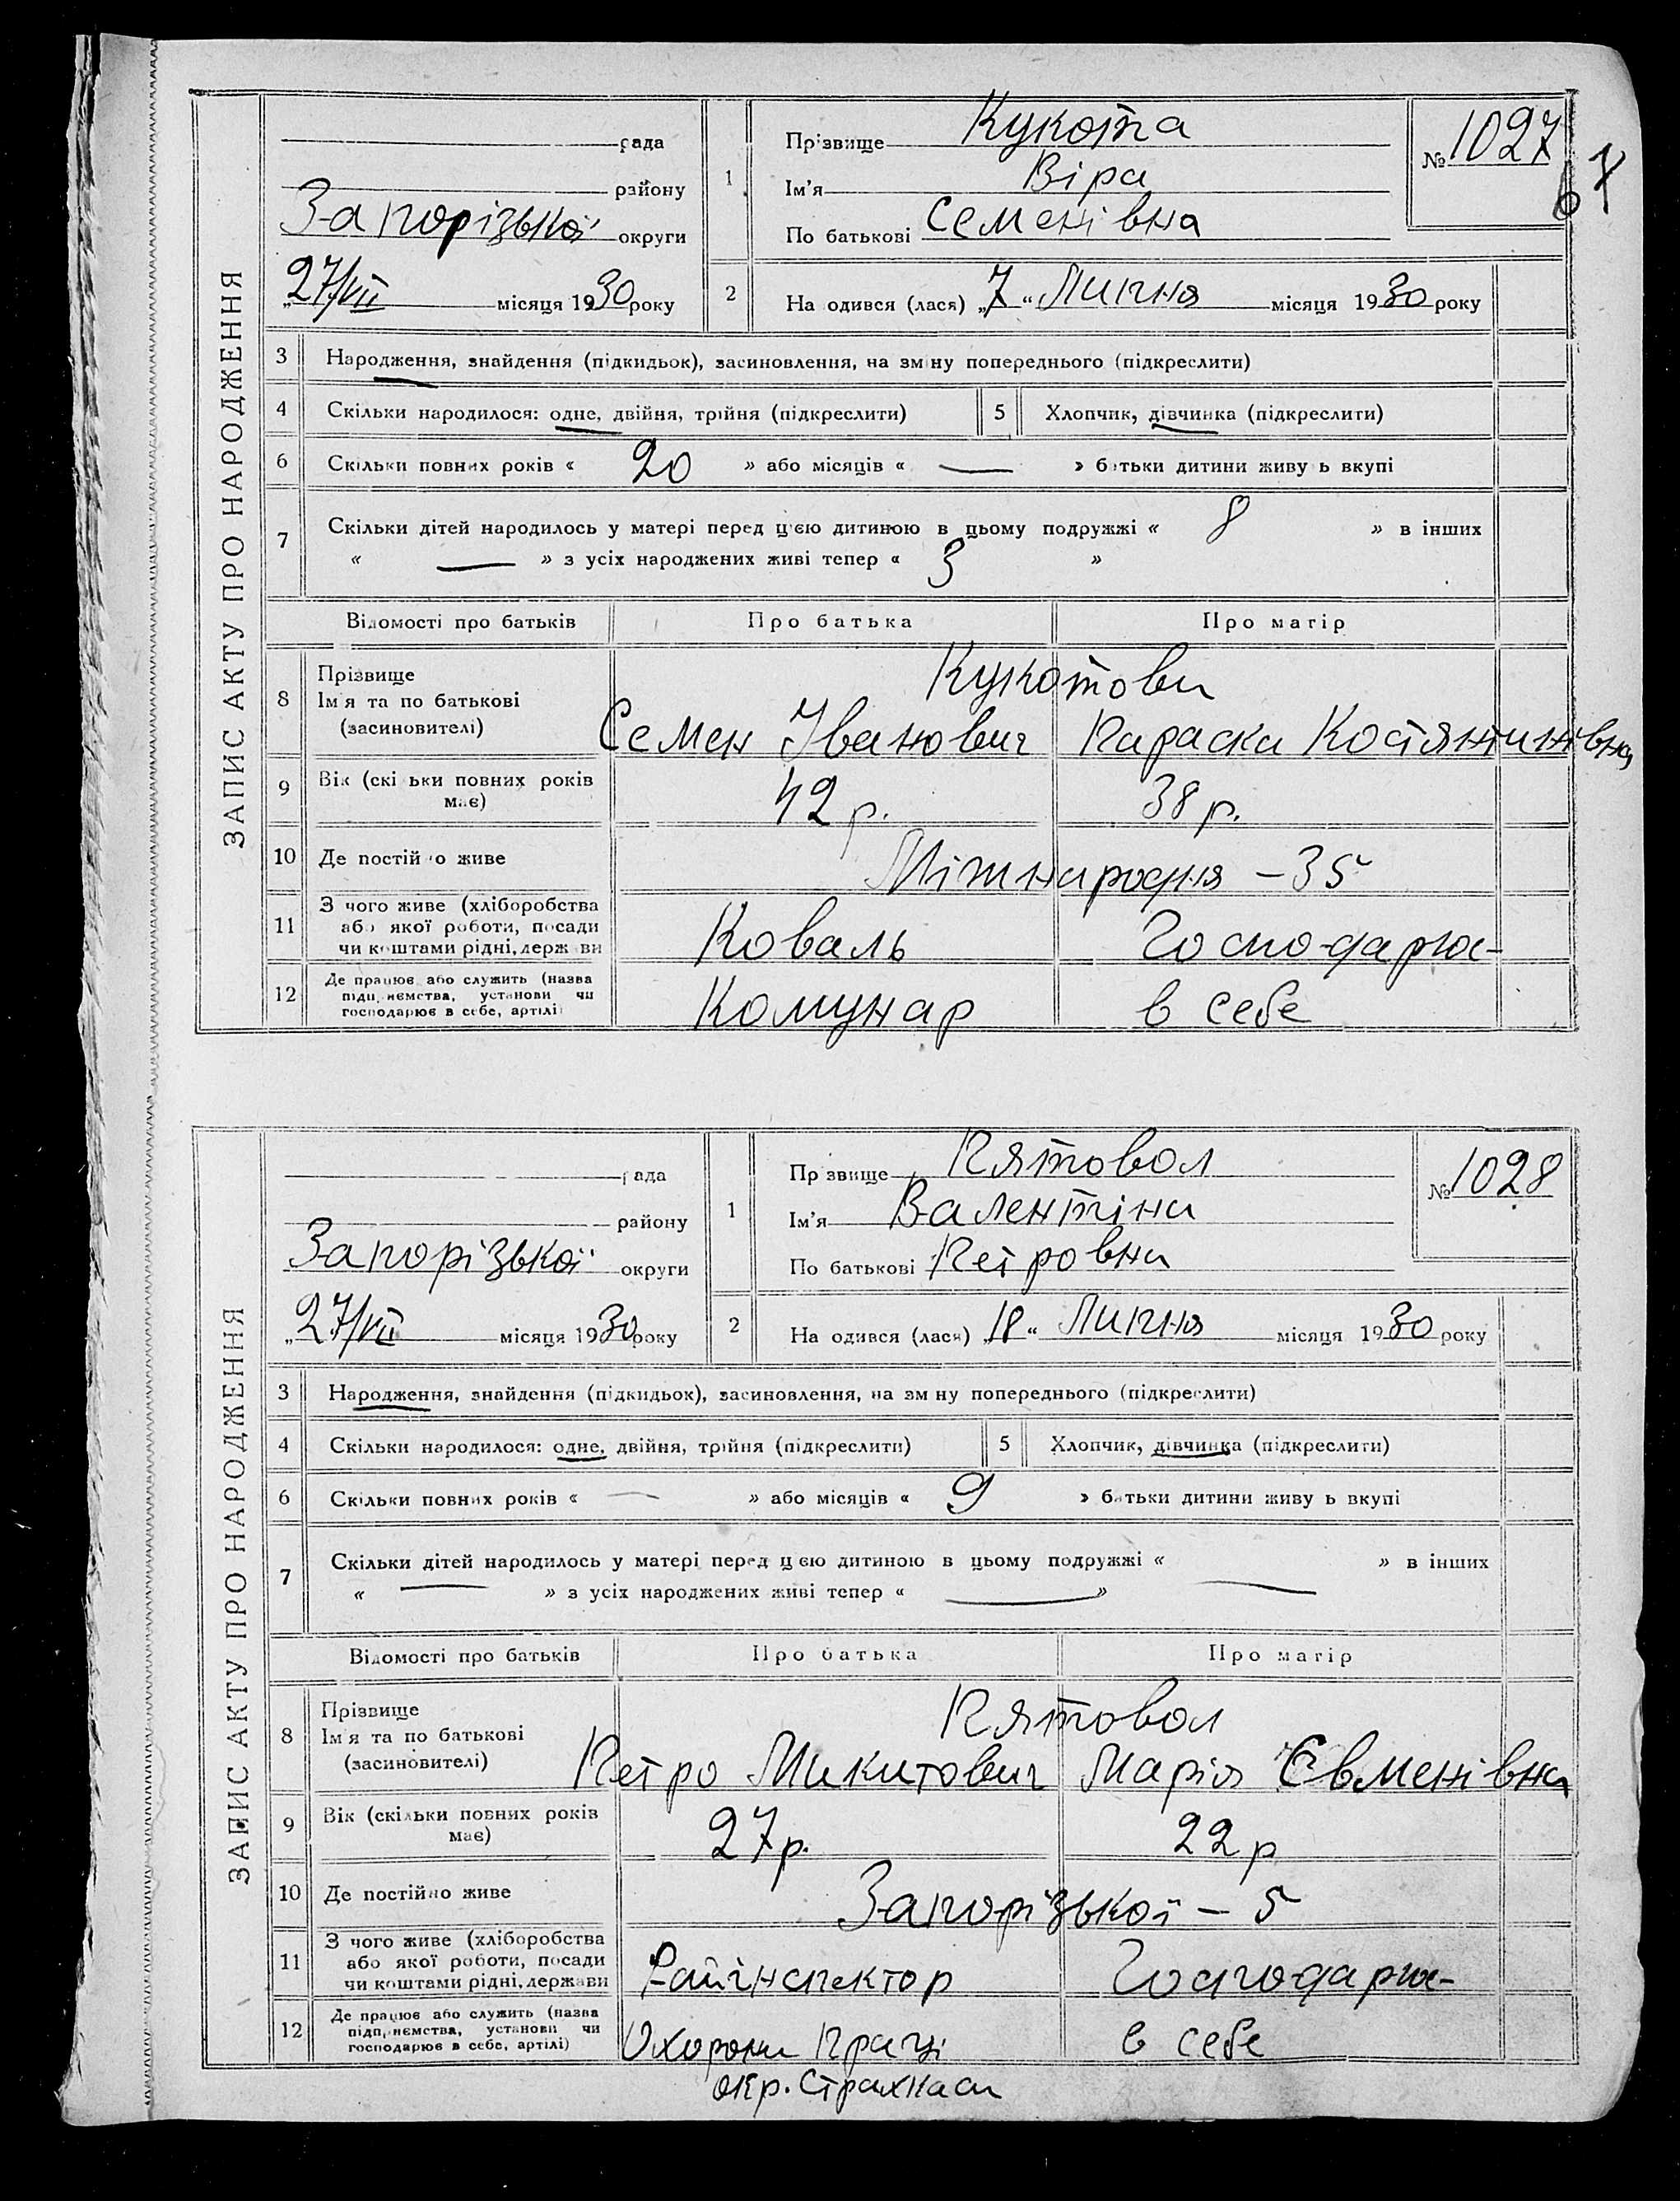 ЗАПИС АКТУ ПРО НАРОДЖЕННЯ
рада
району
Запорізької округи
„27/VII місяця 1930 року
1
Прізвище Кукота
Ім'я Віра
По батькові Семенівна
№ 1027
67
2 На одився (лася) „7“ Липня місяця 1930 року
3 Народження, знайдення (підкидьок), засиновлення, на зміну попереднього (підкреслити)
4 Скільки народилося: одне, двійня, трійня (підкреслити) 5 Хлопчик, дівчинка (підкреслити)
6 Скільки повних років « 20 » або місяців « — » батьки дитини живу ь вкупі
7 Скільки дітей народилось у матері перед цією дитиною в цьому подружжі « 8 » в інших
« — » з усіх народжених живі тепер « 3 »
Відомості про батьків Про батька Про матір
8 Прізвище
Ім я та по батькові
(засиновителі)
Кукотови
Семен Іванович Параска Костянтинівна
9 Вік (скі ьки повних років
має)
42 р. 38 р.
10 Де постій о живе Міжнародня – 35
11 З чого живе (хліборобства
або якої роботи, посади
чи коштами рідні, держ ви
Коваль Господарю-
12 Де працює або служить (назва
підприємства, установи чи
господарює в себе, артілі)
Комунар в себе
ЗАПИС АКТУ ПРО НАРОДЖЕННЯ
рада
району
Запорізької округи
„27/VII місяця 1930 року
1
Пр звище Пятовол
Ім'я Валентіна
По батькові Петровна
№ 1028
2 На одився (лася) „18“ Липня місяця 1930 року
3 Народження, знайдення (підкидьок), засиновлення, на зм ну попереднього (підкреслити)
4 Скільки народилося: одне, двійня, трійня (підкреслити) 5 Хлопчик, дівчинка (підкреслити)
6 Скільки повних років « — » або місяців « 9 » батьки дитини живу ь вкупі
7 Скільки дітей народилось у матері перед ц єю дитиною в цьому подружжі « — » в інших
« — » з усіх народжених живі тепер « — »
Відомості про батьків Про батька Про матір
8 Прізвище
Ім я та по батькові
(засиновителі)
Пятовол
Петро Микитович Марія Євменівна
9 Вік (скільки повних років
має)
27 р. 22 р
10 Де постійно живе Запорізької – 5
11 З чого живе (хліборобства
або якої роботи, посади
чи коштами рідні, держави
Райінспектор Господарю-
12 Де працює або служить (назва
підприємства, установи чи
господарює в себе, артілі)
Охорони Праці в себе
окр. Страхкаси